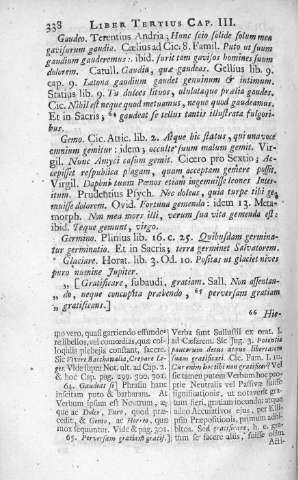 338 LIBER TERTIUS CAP. III.
Gaudeo. Terentius Andria; Hunc scio solide solum mea
gavisurum gaudia. Cœlius ad Cic. 8. Famil. Puto ut suum
gaudium gauderemus: ibid. furit tam gavisos homines suum
dolorem. Catull. Gaudia, quæ gaudeas. Gellius lib. 9.
cap. 9. Latona gaudium gaudet genuinum & intimum.
Statius lib. 9. Tu dulces lituos, ululataque prælia gaudes.
Cic. Nihil est neque quod metuamus, neque quod gaudeamus.
Et in Sacris; 64 gaudeat se tellus tantis illustrata fulgoribus.
Gemo. Cic. Attic. lib. 2. Atque hic status, qui una voce
omnium gemitur: idem; occulte suum malum gemit. Virgil.
Nunc Amyci casum gemit. Cicero pro Sextio; Accepisset
respublica plagam, quam acceptam gemere posset.
Virgil. Daphni tuum Pœnos etiam ingemuisse leones Interitum.
Prudentius Psych. Nec doluit, quia turpe tibi gemuisse
dolorem. Ovid. Fortuna gemenda: idem 13. Metamorph.
Non mea mors illi, verum sua vita gemenda est:
ibid. Teque gemunt, virgo.
Germino. Plinius lib. 16. c. 25. Quibusdam germinatur
germinatio. Et in Sacris; terra germinet Salvatorem.
Glaciare. Horat. lib. 3. Od. 10. Positas ut glaciet nives
puro numine Jupiter.
„ [Gratificare, subaudi, gratiam. Sall. Non assentan-
„ do, neque concupita præbendo, 65 perversam gratiam
„ gratificans.]
66 Hie-
ipo vero, quasi garriendo effundere
libellos, vel comœdias, quas
colloquiis plebejis constant, facere.
Sic Vivere Bacchanalia, Crepare
leges. Vide supra Not. ult. ad Cap. 2.
& hoc Cap. pag. 299. 300. 301.
64. Gaudeat se] Phrasin hanc
inscitam puto & barbaram. At
Verbum ipsum est Neutrum, æque
ac Doleo, Furo, quod præcessit,
& Gemo, ac Horreo, quæ
mox sequuntur. Vide & pag. 301.
65. Perversam gratiam gratif.]
Verba sunt Sallustii ex orat. I.
ad Cæsarem. Sic Jug. 3. Potentiæ
paucorum decus atque libertatem
suam gratificari. Cic. Fam. I. 10.
Cur enim hoc tibi non gratificer? Vel
sic tamen putem Verbum hoc proprie
Neutralis vel Passivæ fuisse
significationis, ut notaverit gratum
fieri, gratum